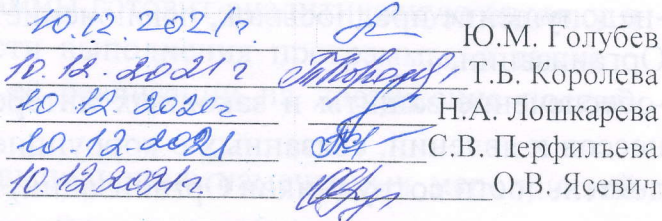 10.12.2021г Ю.М. Голубев
10.12.2021г Т.Б. Королева
10.12.2021г Н.А. Лошкарева
10.12.2021 С.В. Перфильева
10.12.2021г О.В. Ясевич